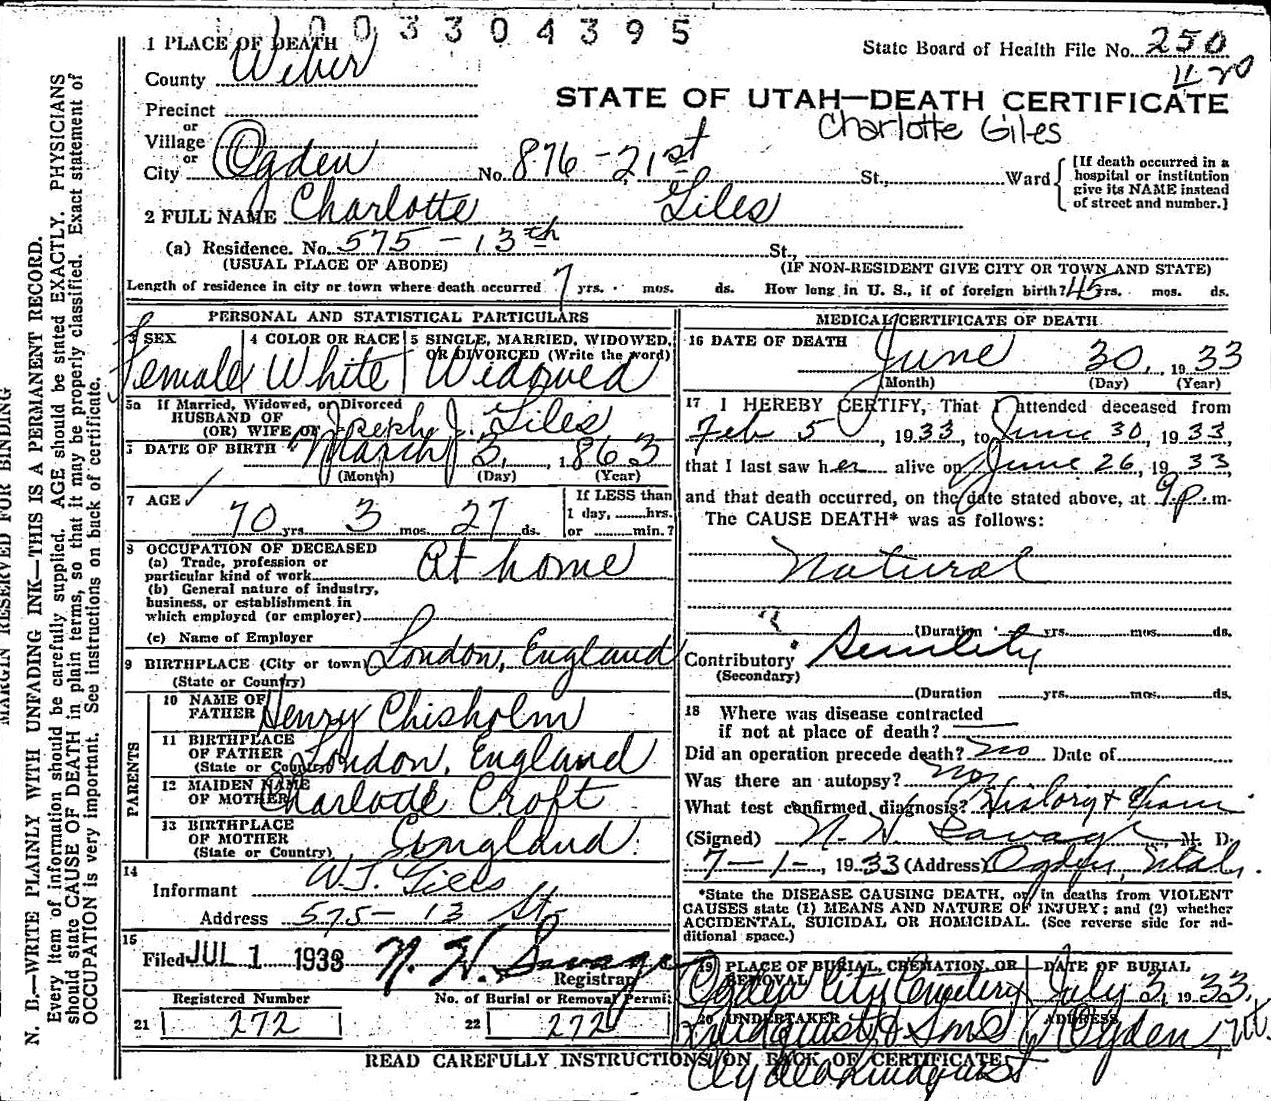 1003304395
1 PLACE OF DEATH
State Board of Health File No. 250
County Weber
11-20
STATE OF UTAH—DEATH CERTIFICATE
Precinct
Charlotte Giles
or
Village
or
City Ogden No. 876-21st St., Ward
[If death occurred in a
hospital or institution
give its NAME instead
of street and number.]
2 FULL NAME Charlotte Giles
(a) Residence. No. 575-13th St.,
(USUAL PLACE OF ABODE) (IF NON-RESIDENT GIVE CITY OR TOWN AND STATE)
Length of residence in city or town where death occurred 7 yrs. mos. ds. How long in U. S., if of foreign birth? 45 yrs. mos. ds.
PERSONAL AND STATISTICAL PARTICULARS
3 SEX Female
4 COLOR OR RACE White
5 SINGLE, MARRIED, WIDOWED,
OR DIVORCED (Write the word)
Widowed
5a If Married, Widowed, or Divorced
HUSBAND OF
(OR) WIFE OF Joseph J. Giles
DATE OF BIRTH March 3, 1863
(Month) (Day) (Year)
7 AGE
70 yrs. 3 mos. 27 ds.
If LESS than
1 day, hrs.
or min.?
8 OCCUPATION OF DECEASED
(a) Trade, profession or
particular kind of work At home
(b) General nature of industry,
business, or establishment in
which employed (or employer)
(c) Name of Employer
9 BIRTHPLACE (City or town) London, England
(State or Country)
PARENTS
10 NAME OF
FATHER Henry Chisholm
11 BIRTHPLACE
OF FATHER London, England
(State or Country)
12 MAIDEN NAME
OF MOTHER Charlotte Croft
13 BIRTHPLACE
OF MOTHER England
(State or Country)
14
Informant W.J. Giles
Address 575-13 St
15
Filed JUL 1 1933 N. H. Savage
Registrar
Registered Number
21 272
No. of Burial or Removal Permit
22 272
MEDICAL CERTIFICATE OF DEATH
16 DATE OF DEATH
June 30, 1933
(Month) (Day) (Year)
17 I HEREBY CERTIFY, That I attended deceased from
Feb 5, 1933, to June 30, 1933,
that I last saw her alive on June 26, 1933
and that death occurred, on the date stated above, at 9 p.m.
The CAUSE DEATH* was as follows:
Natural
(Duration yrs. mos. ds.
Contributory Senility
(Secondary)
(Duration yrs. mos. ds.
18 Where was disease contracted
if not at place of death?
Did an operation precede death? No Date of
Was there an autopsy? No
What test confirmed diagnosis? History &
(Signed) N. H. Savage M. D.
7-1-, 1933 (Address) Ogden, Utah.
*State the DISEASE CAUSING DEATH, or in deaths from VIOLENT
CAUSES state (1) MEANS AND NATURE OF INJURY; and (2) whether
ACCIDENTAL, SUICIDAL OR HOMICIDAL. (See reverse side for ad-
ditional space.)
19 PLACE OF BURIAL, CREMATION, OR
REMOVAL
Ogden City Cemetery
DATE OF BURIAL
July 3, 1933.
20 UNDERTAKER
Lindquist & Sons
ADDRESS
Ogden, Ut.
Clyde Lindquist
READ CAREFULLY INSTRUCTIONS ON BACK OF CERTIFICATE
MARGIN RESERVED FOR BINDING
N. B.—WRITE PLAINLY WITH UNFADING INK—THIS IS A PERMANENT RECORD.
Every item of information should be carefully supplied. AGE should be stated EXACTLY. PHYSICIANS
should state CAUSE OF DEATH in plain terms, so that it may be properly classified. Exact statement of
OCCUPATION is very important. See instructions on back of certificate.